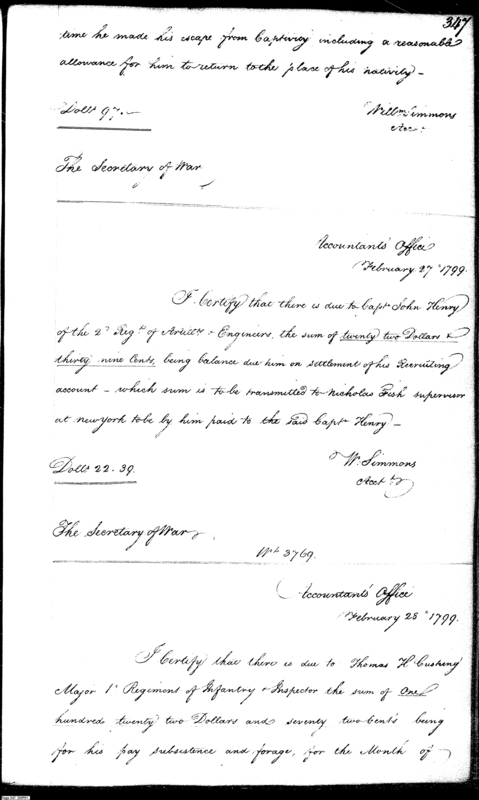 347
time he made his escape from Captivity including a reasonable
allowance for him to return to the place of his nativity –
Dolls 97. –
Willm Simmons
Acct
The Secretary of War
Accountants Office
February 27th 1799.
I Certify that there is due to Captn John Henry
of the 2d Regt of Artills & Engineers, the sum of twenty two Dollars &
thirty nine Cents, being balance due him on settlement of his Recruiting
account – which sum is to be transmitted to Nicholas Fish supervisor
at new york to be by him paid to the said Captn Henry –
Dolls 22.39.
Wm Simmons
Acctt
The Secretary of War
Wt 3769.
Accountant's Office
February 28th 1799.
I Certify that there is due to Thomas H Cushing
Major 1st Regiment of Infantry & Inspector the sum of One
hundred twenty two Dollars and seventy two Cents being
for his pay subsistence and forage, for the Month of